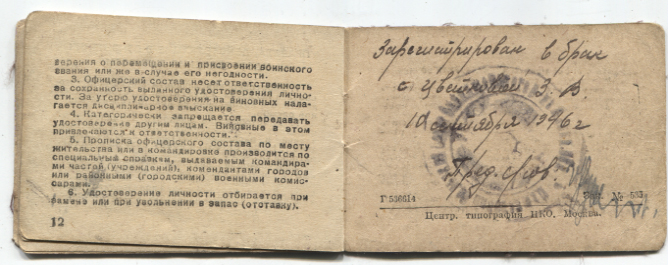 верения о перемещении и присвоении воинского
звания или же в случае его негодности.
3. Офицерский состав несет ответственность
за сохранность выданного удостоверения лично-
сти. За утерю удостоверения на виновных нала-
гается дисциплинарное взыскание.
4. Категорически запрещается передавать
удостоверение другим лицам. Виновные в этом
привлекаются к ответственности.
5. Прописка офицерского состава по месту
жительства или в командировке производится по
специальным справкам, выдаваемым командира-
ми частей (учреждений), комендантами городов
или районными (городскими) военными комис-
сарами.
6. Удостоверение личности отбирается при
замене или при увольнении в запас (отставку).
12
Зарегистрирован в брак
с Цветковой З. В
10 сентября 1946 г
Пред.
Г 536614
Зак. № 535
Центр. типография НКО. Москва.